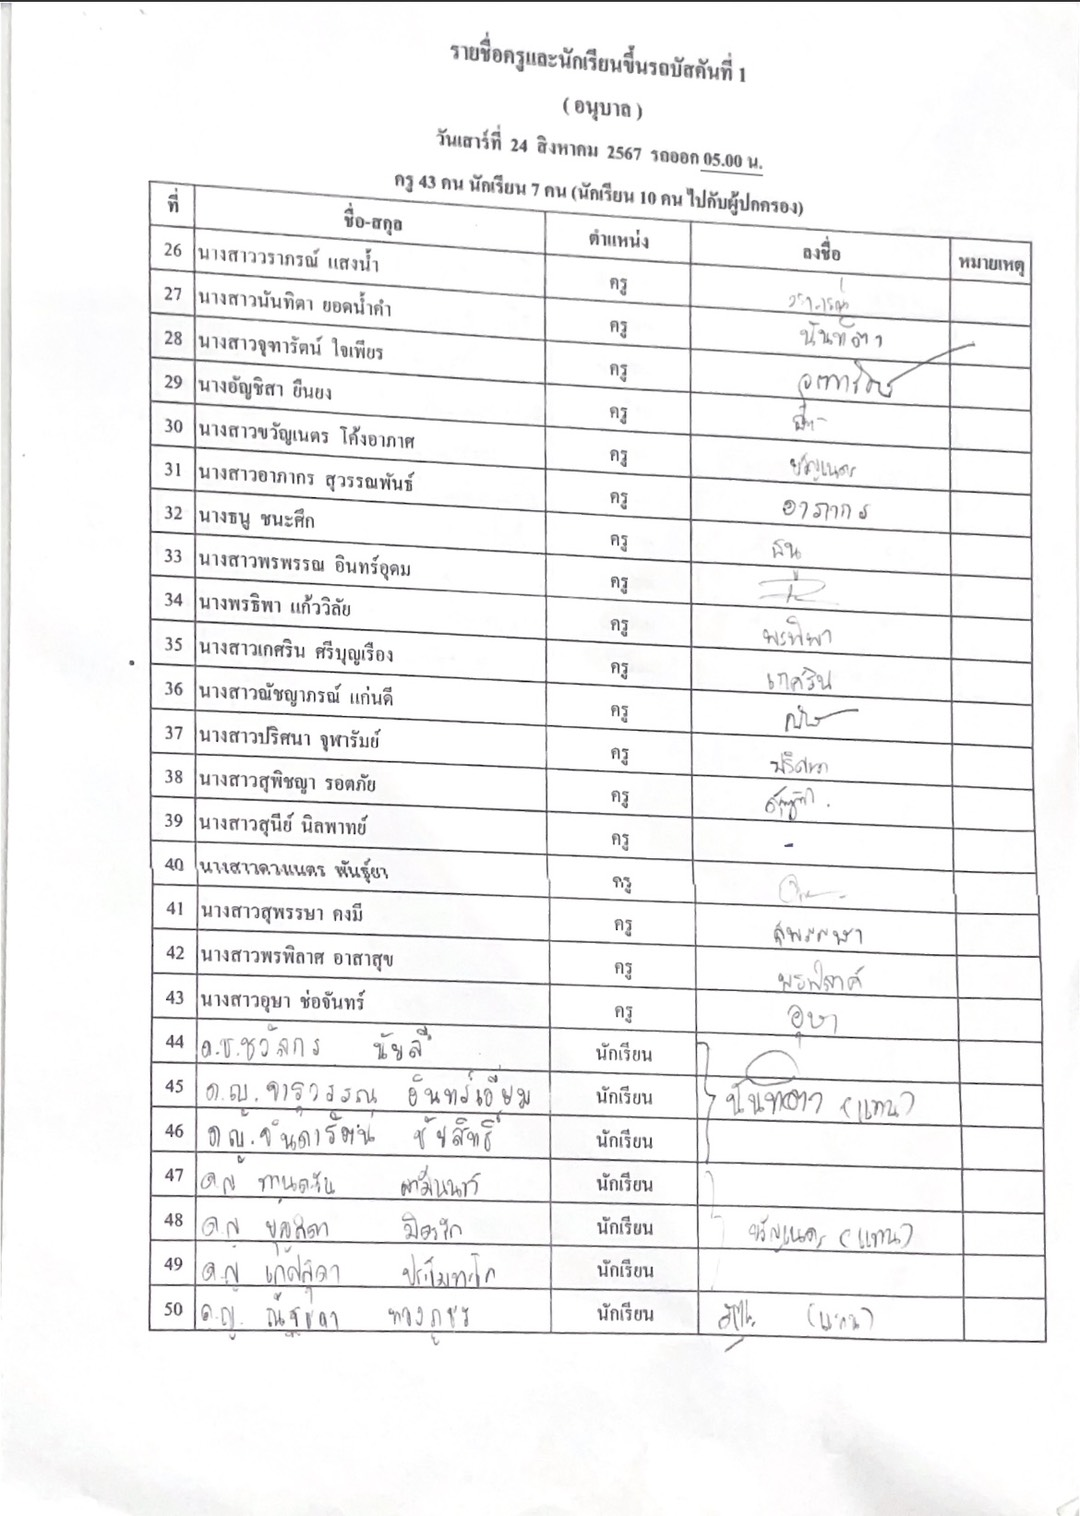 รายชื่อครูและนักเรียนขึ้นรถบัสคันที่ 1
( อนุบาล )
วันเสาร์ที่ 24 สิงหาคม 2567 รถออก 05.00 น.
ครู 43 คน นักเรียน 7 คน (นักเรียน 10 คน ไปกับผู้ปกครอง)
ที่ ชื่อ-สกุล ตำแหน่ง ลงชื่อ หมายเหตุ
26 นางสาววราภรณ์ แสงน้ำ ครู วราภรณ์
27 นางสาวนันทิตา ยอดน้ำคำ ครู นันทิตา
28 นางสาวจุฑารัตน์ ใจเพียร ครู จุฑารัตน์
29 นางอัญชิสา ยืนยง ครู
30 นางสาวขวัญเนตร โค้งอาภาศ ครู ขวัญเนตร
31 นางสาวอาภากร สุวรรณพันธ์ ครู อาภากร
32 นางธนู ชนะศึก ครู ธนู
33 นางสาวพรพรรณ อินทร์อุดม ครู
34 นางพรธิพา แก้ววิลัย ครู พรธิพา
35 นางสาวเกศริน ศรีบุญเรือง ครู เกศริน
36 นางสาวณัชญาภรณ์ แก่นดี ครู ณัช
37 นางสาวปริศนา จุฬารัมย์ ครู ปริศนา
38 นางสาวสุพิชญา รอตภัย ครู
39 นางสาวสุนีย์ นิลพาทย์ ครู -
40 นางสาวดวงเนตร พันธุ์ยา ครู
41 นางสาวสุพรรษา คงมี ครู สุพรรษา
42 นางสาวพรพิลาศ อาสาสุข ครู พรพิลาศ
43 นางสาวอุษา ช่อจันทร์ ครู อุษา
44 ด.ช.ชวัลกร นักเรียน
45 ด.ญ. จารุวรรณ อินทร์เอี่ยม นักเรียน นันทิตา (แทน)
46 ด.ญ. จันดารัตน์ ชัยสิทธิ์ นักเรียน
47 ด.ญ นักเรียน
48 ด.ญ นักเรียน ขวัญเนตร (แทน)
49 ด.ญ นักเรียน
50 ด.ญ. ณัฐชดา นักเรียน (แทน)